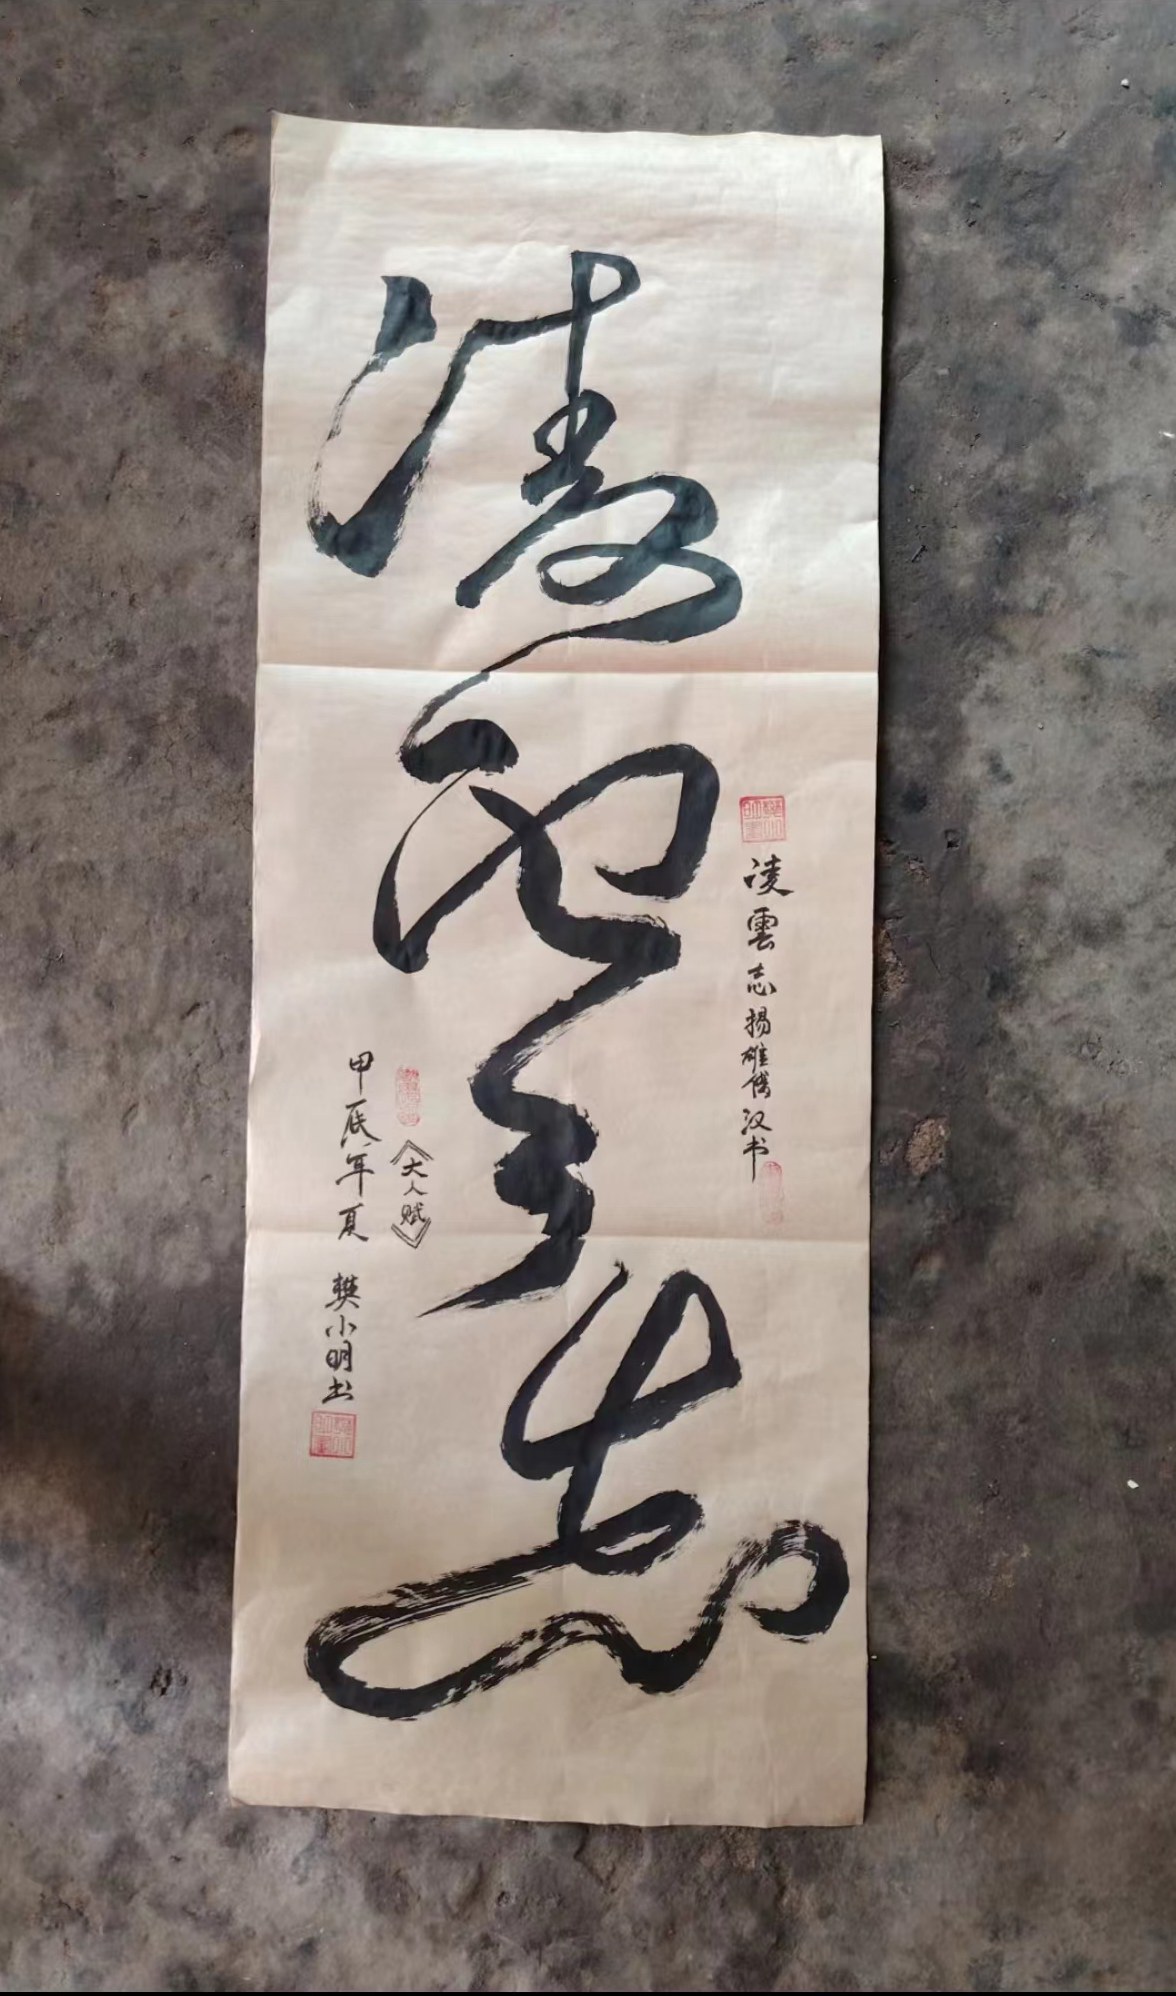 凌雲志
凌雲志揚雄傳汉书
《大人赋》
甲辰年夏 樊小明书